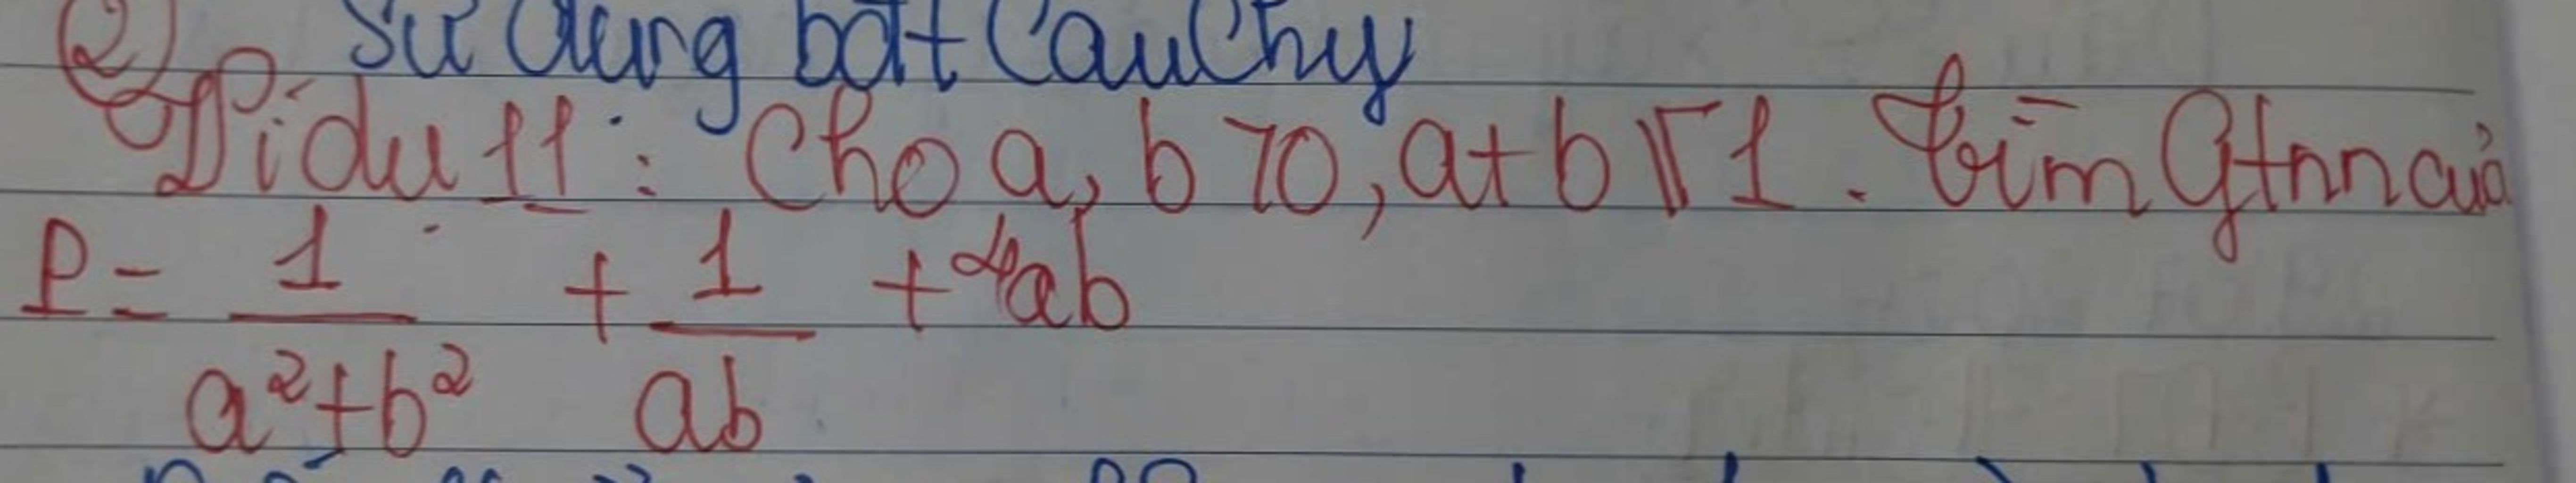 ② Sử dụng bất Cauchy
Ví dụ 11: Cho a, b > 0, a + b ≤ 1. Tìm Gtnn của
P = 1/(a² + b²) + 1/(ab) + 4ab